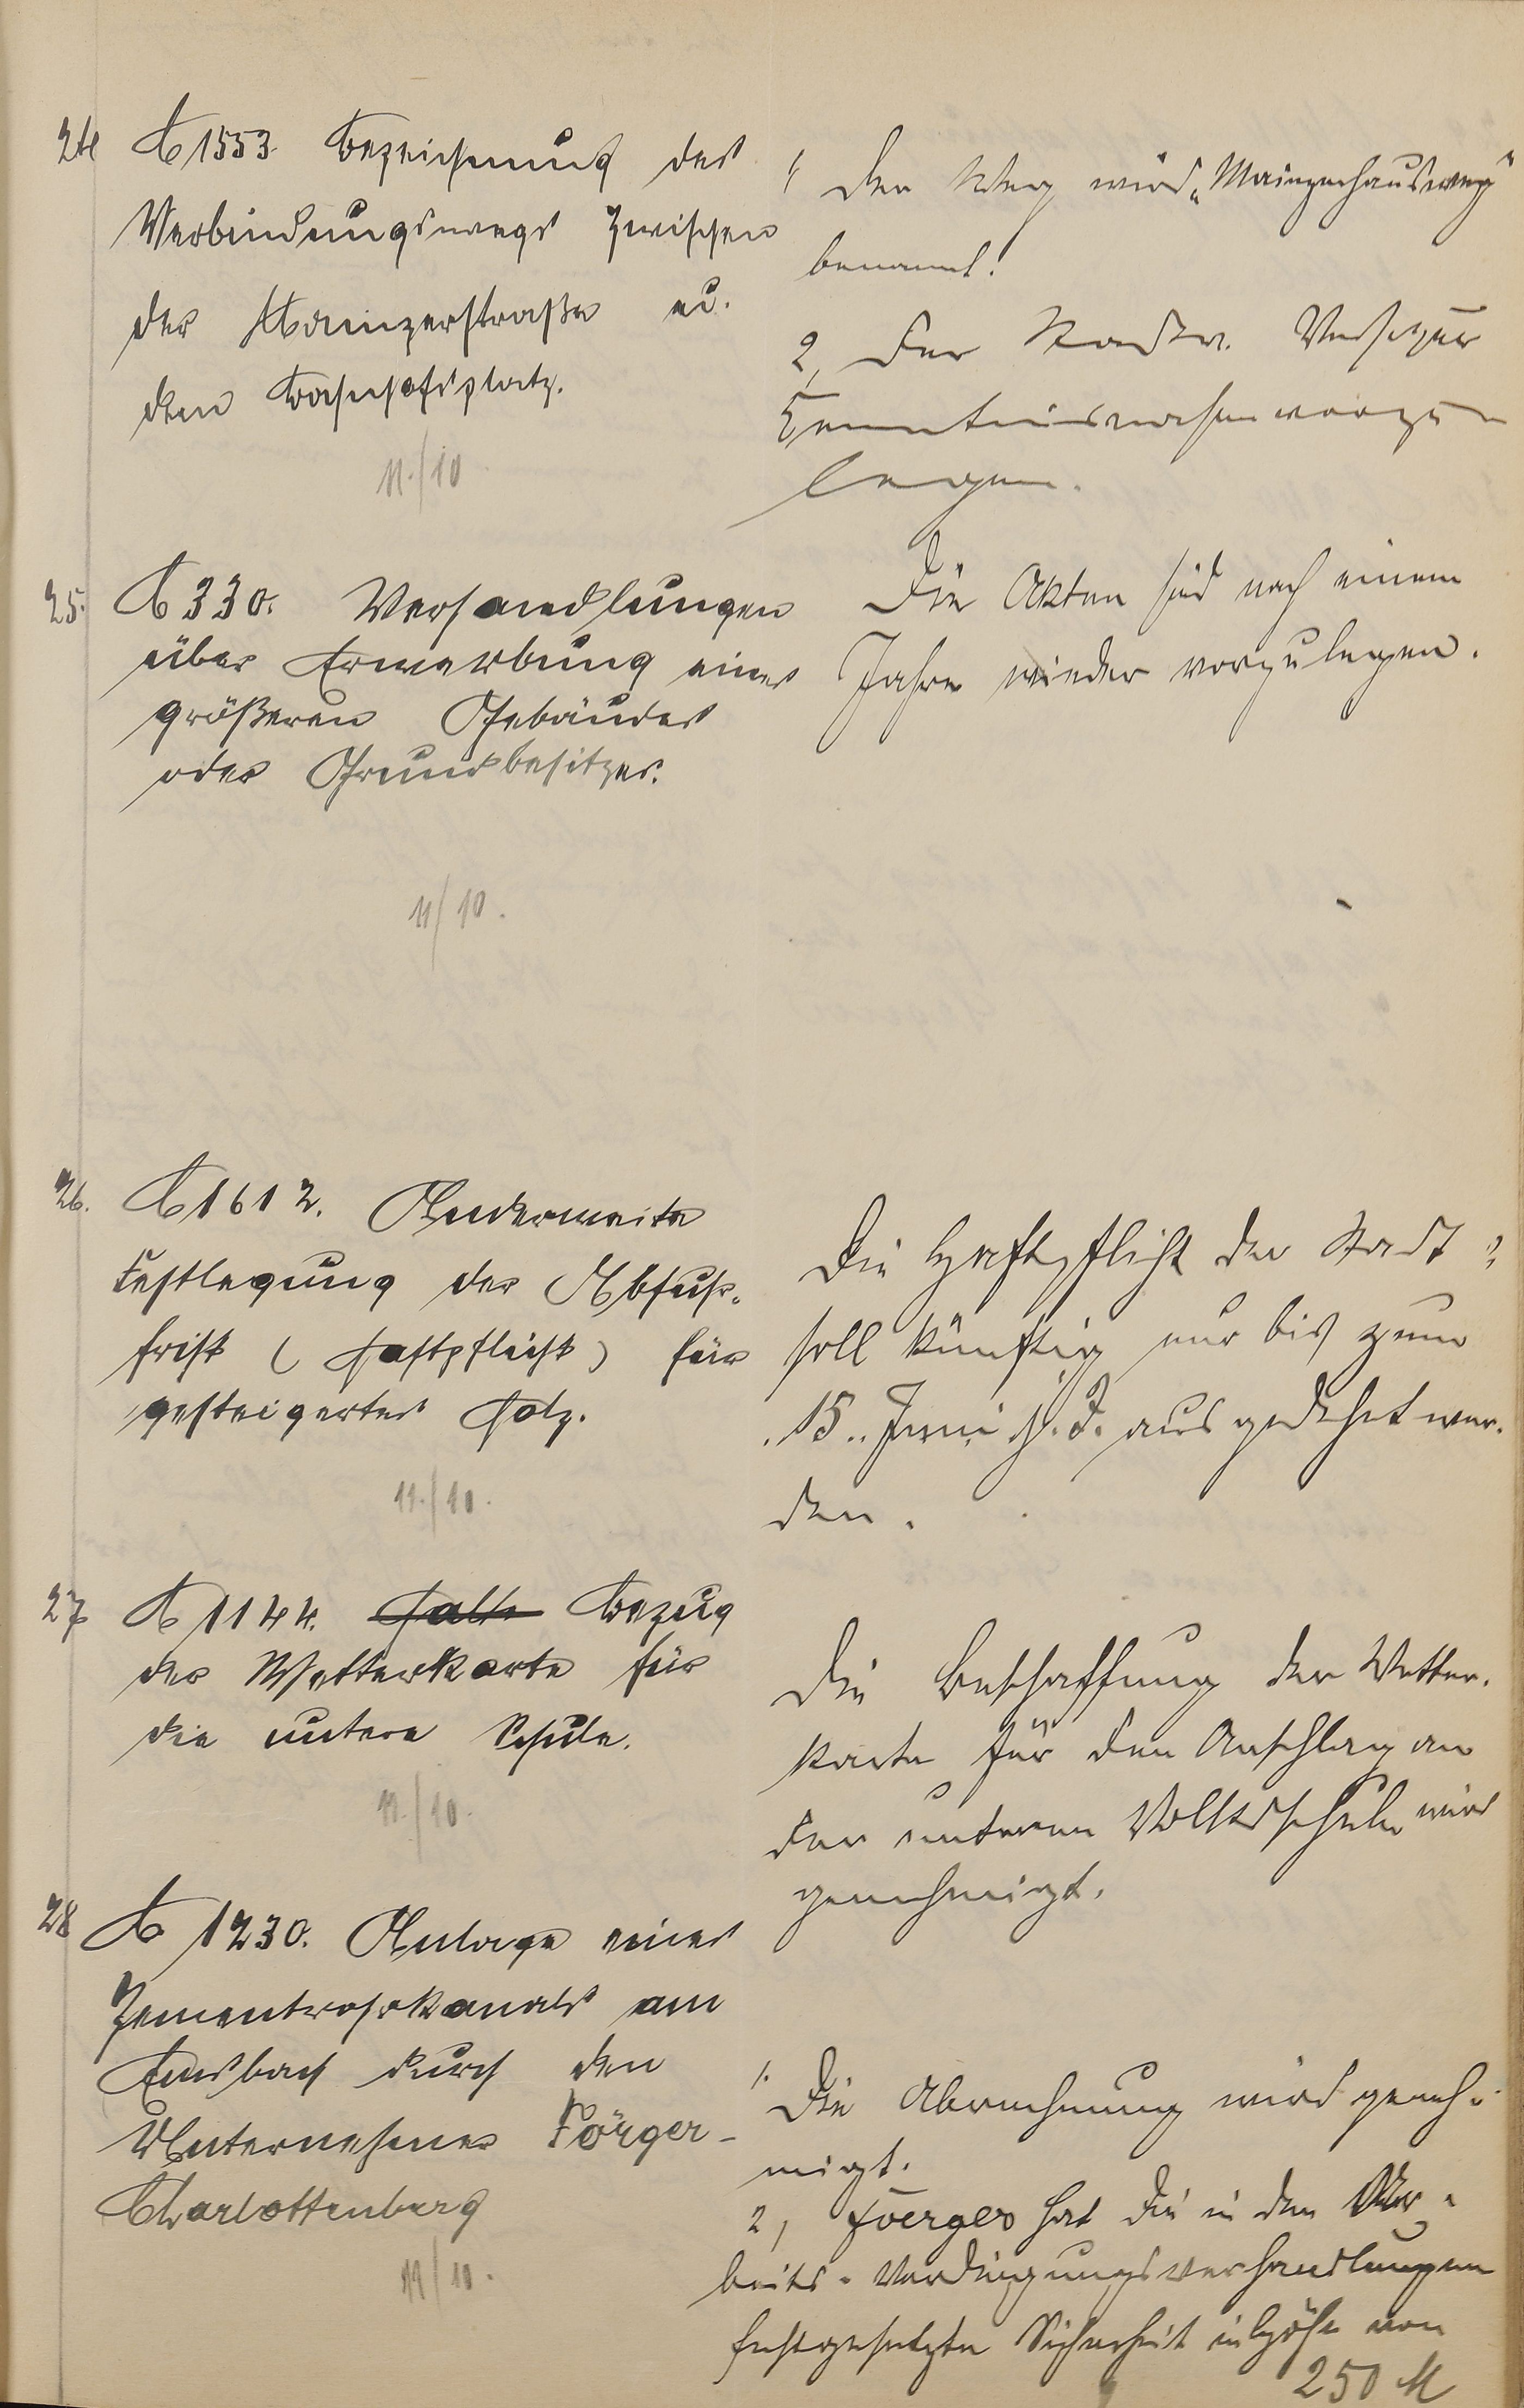 24
B 1553. Bezeichnung des
Verbindungswegs zwischen
der Mainzerstraße u.
dem Bahnhofsplatz.
11./10
1, Der Weg wird „Mainzerhausweg“
benannt.
2, Der Stadtv. Vers. zur
Kenntnisnahme vorzu
legen.
25.
B 330. Verhandlungen
über Erwerbung eines
größeren Gebäudes
oder Grundbesitzes.
11/10.
Die Akten sind nach einem
Jahre wieder vorzulegen.
26.
B 1612. Anderweite
Festlegung der Abfuhr-
frist (Haftpflicht) für
gesteigertes Holz.
11./10.
Die Haftpflicht der Stadt
soll künftig nur bis zum
15. Juni j. J. ausgedehnt wer-
den.
27
B 1144. Bezug
der Wetterkarte für
die untere Schule.
11./10.
Die Beschaffung der Wetter-
karte für den Anschlag an
der unteren Volksschule wird
genehmigt.
28
B 1230. Anlage eines
Zementrohrkanals am
Emsbach durch den
Unternehmer Förger-
Charlottenberg
11/10.
1. Die Abrechnung wird geneh-
migt.
2, Foerger hat die in den Ar-
beits-Verdingungsverhandlungen
festgesetzte Sicherheit in Höhe von
250 M